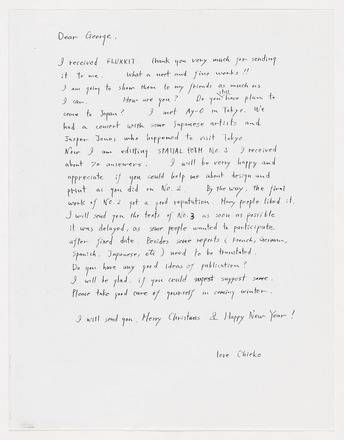 Dear George,
I received FLUXKIT. Thank you very much for sending
it to me. What a neet and fine works!!
I am going to show them to my friends as much as
I can. How are you? Do you still have plan to
come to Japan? I met Ay-O in Tokyo. We
had a concert with some Japanese artists and
Jasper Jones who happened to visit Tokyo.
Now I am editting SPATIAL POEM No. 3. I received
about 70 answeres. I will be very happy and
appreciate if you could help me about design and
print as you did on No. 2. By the way, the final
work of No. 2 got a good reputation. Many people liked it.
I will send you the texts of No. 3 as soon as possible
it was delayed, as some people wanted to participate
after fixed date. Besides some reports (French, German,
Spanish, Japanese, etc) need to be translated.
Do you have any good ideas of publication?
I will be glad, if you could suggest some.
Please take good care of yourself in coming winter.
I will send you, Merry Christmas & Happy New Year!
love Chieko